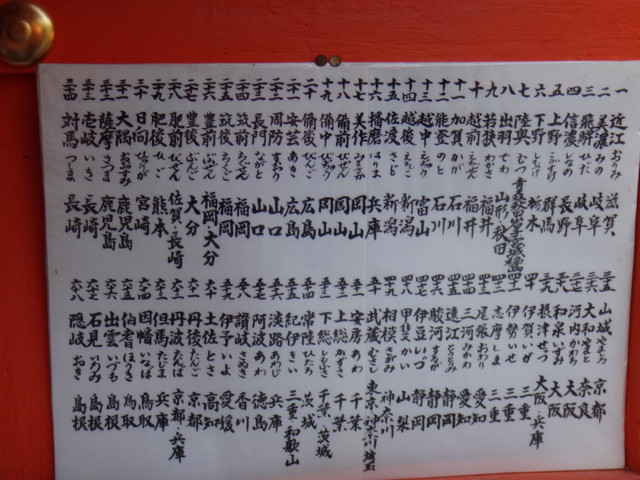 一 近江 おうみ 滋賀
二 美濃 みの 岐阜
三 飛騨 ひだ 岐阜
四 信濃 しなの 長野
五 上野 こうずけ 群馬
六 下野 しもつけ 栃木
七 陸奥 むつ 青森・秋田・岩手・宮城・福島
八 出羽 でわ 山形・秋田
九 若狭 わかさ 福井
十 越前 えちぜん 福井
十一 加賀 かが 石川
十二 能登 のと 石川
十三 越中 えっちゅう 富山
十四 越後 えちご 新潟
十五 佐渡 さど 新潟
十六 播磨 はりま 兵庫
十七 美作 みまさか 岡山
十八 備前 びぜん 岡山
十九 備中 びっちゅう 岡山
二十 備後 びんご 広島
二十一 安芸 あき 広島
二十二 周防 すおう 山口
二十三 長門 ながと 山口
二十四 筑前 ちくぜん 福岡
二十五 筑後 ちくご 福岡
二十六 豊前 ぶぜん 福岡・大分
二十七 豊後 ぶんご 大分
二十八 肥前 ひぜん 佐賀・長崎
二十九 肥後 ひご 熊本
三十 日向 ひゅうが 宮崎
三十一 大隅 おおすみ 鹿児島
三十二 薩摩 さつま 鹿児島
三十三 壱岐 いき 長崎
三十四 対馬 つしま 長崎
三十五 山城 やましろ 京都
三十六 大和 やまと 奈良
三十七 河内 かわち 大阪
三十八 和泉 いずみ 大阪
三十九 摂津 せっつ 大阪・兵庫
四十 伊賀 いが 三重
四十一 伊勢 いせ 三重
四十二 志摩 しま 三重
四十三 尾張 おわり 愛知
四十四 三河 みかわ 愛知
四十五 遠江 とおとうみ 静岡
四十六 駿河 するが 静岡
四十七 伊豆 いづ 静岡
四十八 甲斐 かい 山梨
四十九 相模 さがみ 神奈川
五十 武蔵 むさし 東京・神奈川・埼玉
五十一 安房 あわ 千葉
五十二 上総 かずさ 千葉
五十三 下総 しもふさ 千葉・茨城
五十四 常陸 ひたち 茨城
五十五 紀伊 きい 三重・和歌山
五十六 淡路 あわじ 兵庫
五十七 阿波 あわ 徳島
五十八 讃岐 さぬき 香川
五十九 伊予 いよ 愛媛
六十 土佐 とさ 高知
六十一 丹後 たんご 京都
六十二 丹波 たんば 京都・兵庫
六十三 但馬 たじま 兵庫
六十四 因幡 いなば 鳥取
六十五 伯耆 ほうき 鳥取
六十六 出雲 いづも 島根
六十七 石見 いわみ 島根
六十八 隠岐 おき 島根